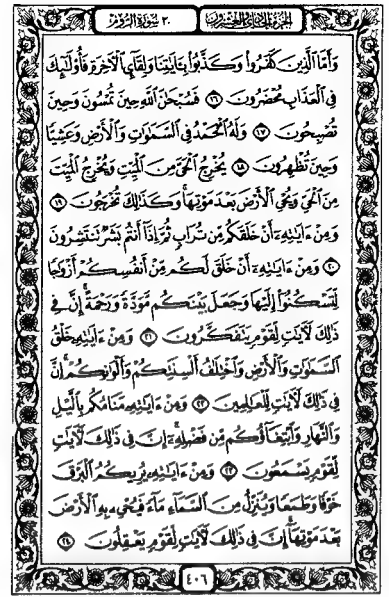 الجزء الحادي والعشرون ٣٠ سورة الروم
وَأَمَّا ٱلَّذِينَ كَفَرُواْ وَكَذَّبُواْ بِـَٔايَٰتِنَا وَلِقَآيِٕ ٱلْأَخِرَةِ فَأُوْلَٰٓئِكَ
فِى ٱلْعَذَابِ مُحْضَرُونَ ١٦ فَسُبْحَٰنَ ٱللَّهِ حِينَ تُمْسُونَ وَحِينَ
تُصْبِحُونَ ١٧ وَلَهُ ٱلْحَمْدُ فِى ٱلسَّمَٰوَٰتِ وَٱلْأَرْضِ وَعَشِيًّا
وَحِينَ تُظْهِرُونَ ١٨ يُخْرِجُ ٱلْحَىَّ مِنَ ٱلْمَيِّتِ وَيُخْرِجُ ٱلْمَيِّتَ
مِنَ ٱلْحَىِّ وَيُحْىِ ٱلْأَرْضَ بَعْدَ مَوْتِهَا ۚ وَكَذَٰلِكَ تُخْرَجُونَ ١٩
وَمِنْ ءَايَٰتِهِۦٓ أَنْ خَلَقَكُم مِّن تُرَابٍ ثُمَّ إِذَآ أَنتُم بَشَرٌ تَنتَشِرُونَ
٢٠ وَمِنْ ءَايَٰتِهِۦٓ أَنْ خَلَقَ لَكُم مِّنْ أَنفُسِكُمْ أَزْوَٰجًا
لِّتَسْكُنُوٓاْ إِلَيْهَا وَجَعَلَ بَيْنَكُم مَّوَدَّةً وَرَحْمَةً ۚ إِنَّ فِى
ذَٰلِكَ لَأٓيَٰتٍ لِّقَوْمٍ يَتَفَكَّرُونَ ٢١ وَمِنْ ءَايَٰتِهِۦ خَلْقُ
ٱلسَّمَٰوَٰتِ وَٱلْأَرْضِ وَٱخْتِلَٰفُ أَلْسِنَتِكُمْ وَأَلْوَٰنِكُمْ ۚ إِنَّ
فِى ذَٰلِكَ لَأٓيَٰتٍ لِّلْعَٰلِمِينَ ٢٢ وَمِنْ ءَايَٰتِهِۦ مَنَامُكُم بِٱلَّيْلِ
وَٱلنَّهَارِ وَٱبْتِغَآؤُكُم مِّن فَضْلِهِۦٓ ۚ إِنَّ فِى ذَٰلِكَ لَأٓيَٰتٍ
لِّقَوْمٍ يَسْمَعُونَ ٢٣ وَمِنْ ءَايَٰتِهِۦ يُرِيكُمُ ٱلْبَرْقَ
خَوْفًا وَطَمَعًا وَيُنَزِّلُ مِنَ ٱلسَّمَآءِ مَآءً فَيُحْىِۦ بِهِ ٱلْأَرْضَ
بَعْدَ مَوْتِهَآ ۚ إِنَّ فِى ذَٰلِكَ لَأٓيَٰتٍ لِّقَوْمٍ يَعْقِلُونَ ٢٤
٤٠٦